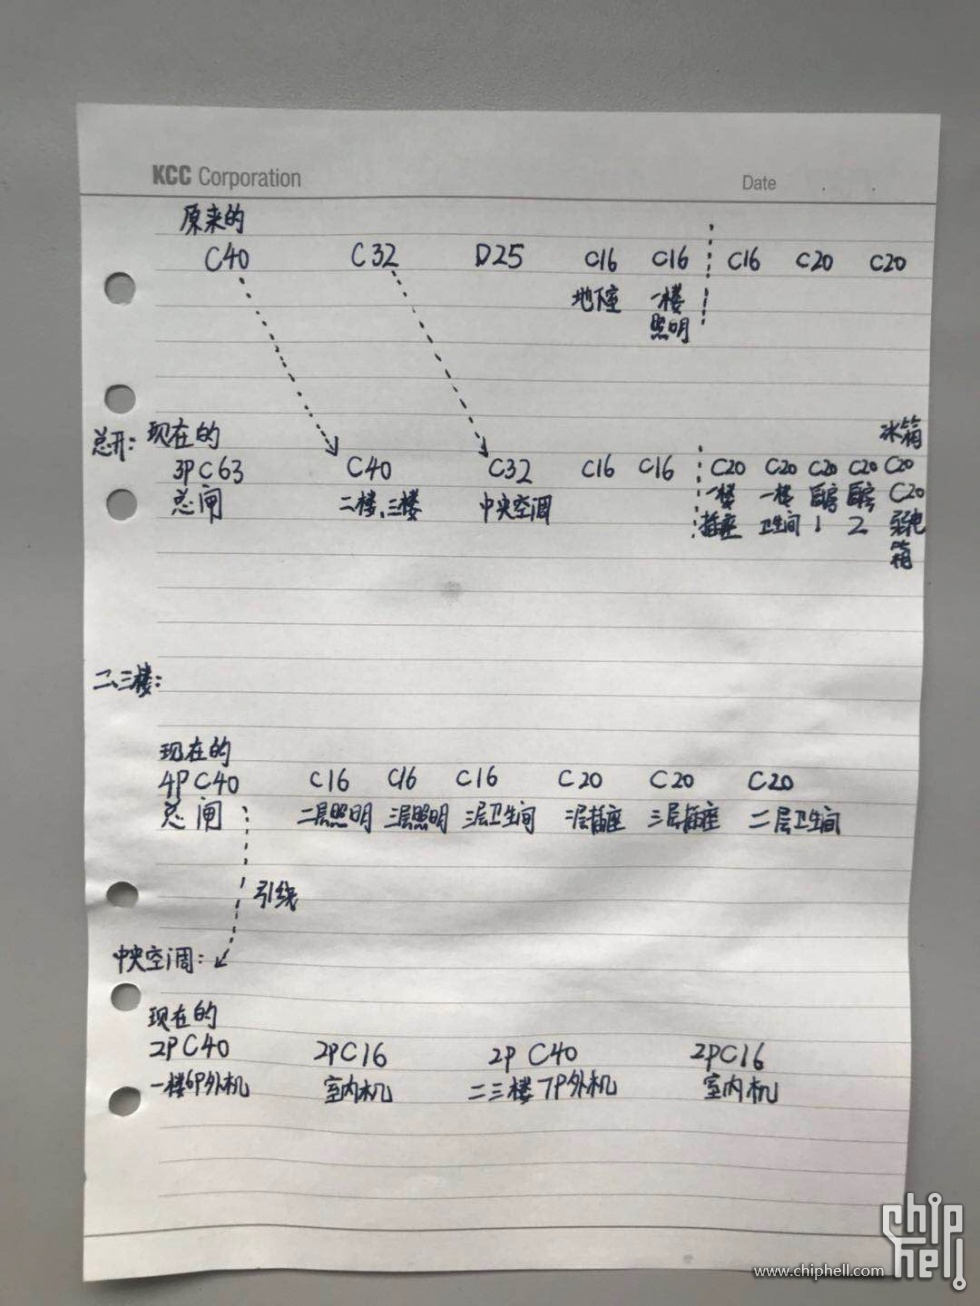 KCC Corporation
Date
原来的
C40 C32 D25 C16 C16 C16 C20 C20
地下室 一楼
照明
冰箱
总开: 现在的
3P C63 C40 C32 C16 C16 C20 C20 C20 C20 C20
总闸 二楼、三楼 中央空调 一楼 一楼 C20
插座 卫生间 1 2 弱电
箱
二、三楼:
现在的
4P C40 C16 C16 C16 C20 C20 C20
总闸 二层照明 三层照明 三层卫生间 二层插座 三层插座 二层卫生间
引线
中央空调:
现在的
2P C40 2PC16 2P C40 2PC16
一楼6P外机 室内机 二三楼7P外机 室内机
chip
hell
www.chiphell.com